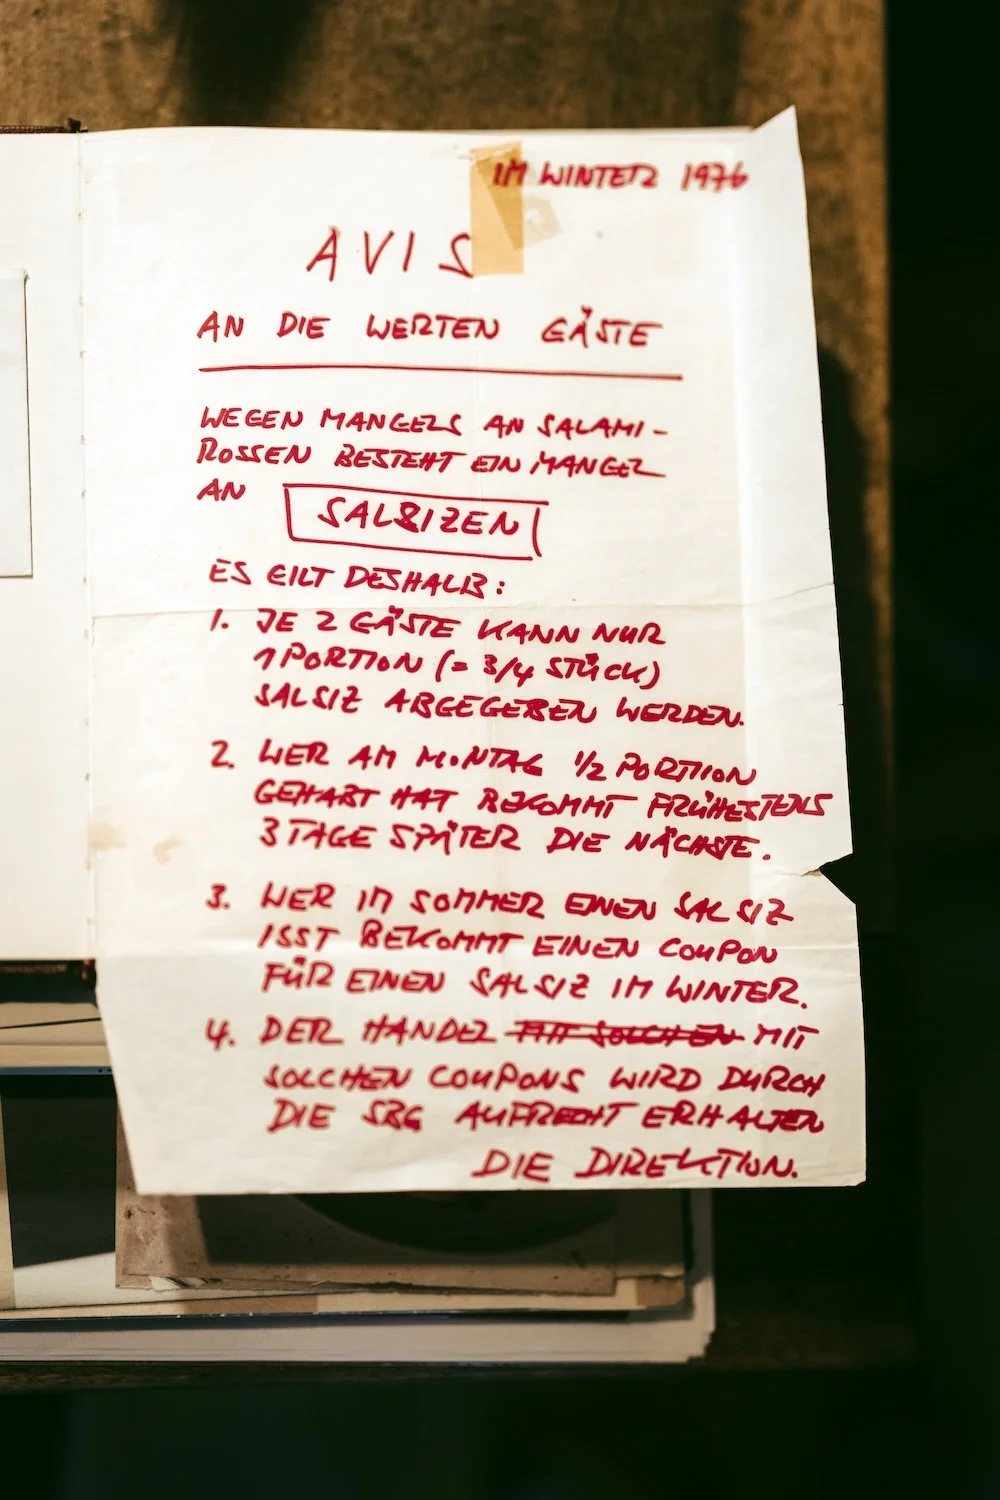 IM WINTER 1976
AVIS
AN DIE WERTEN GÄSTE
WEGEN MANGELS AN SALAMI-
ROSSEN BESTEHT EIN MANGEL
AN SALSIZEN
ES GILT DESHALB:
1. JE 2 GÄSTE KANN NUR
1 PORTION (= 3/4 STÜCK)
SALSIZ ABGEGEBEN WERDEN.
2. WER AM MONTAG 1/2 PORTION
GEHABT HAT BEKOMMT FRÜHESTENS
3 TAGE SPÄTER DIE NÄCHSTE.
3. WER IM SOMMER EINEN SALSIZ
ISST BEKOMMT EINEN COUPON
FÜR EINEN SALSIZ IM WINTER.
4. DER HANDEL MIT SOLCHEN MIT
SOLCHEN COUPONS WIRD DURCH
DIE SBG AUFRECHT ERHALTEN
DIE DIREKTION.